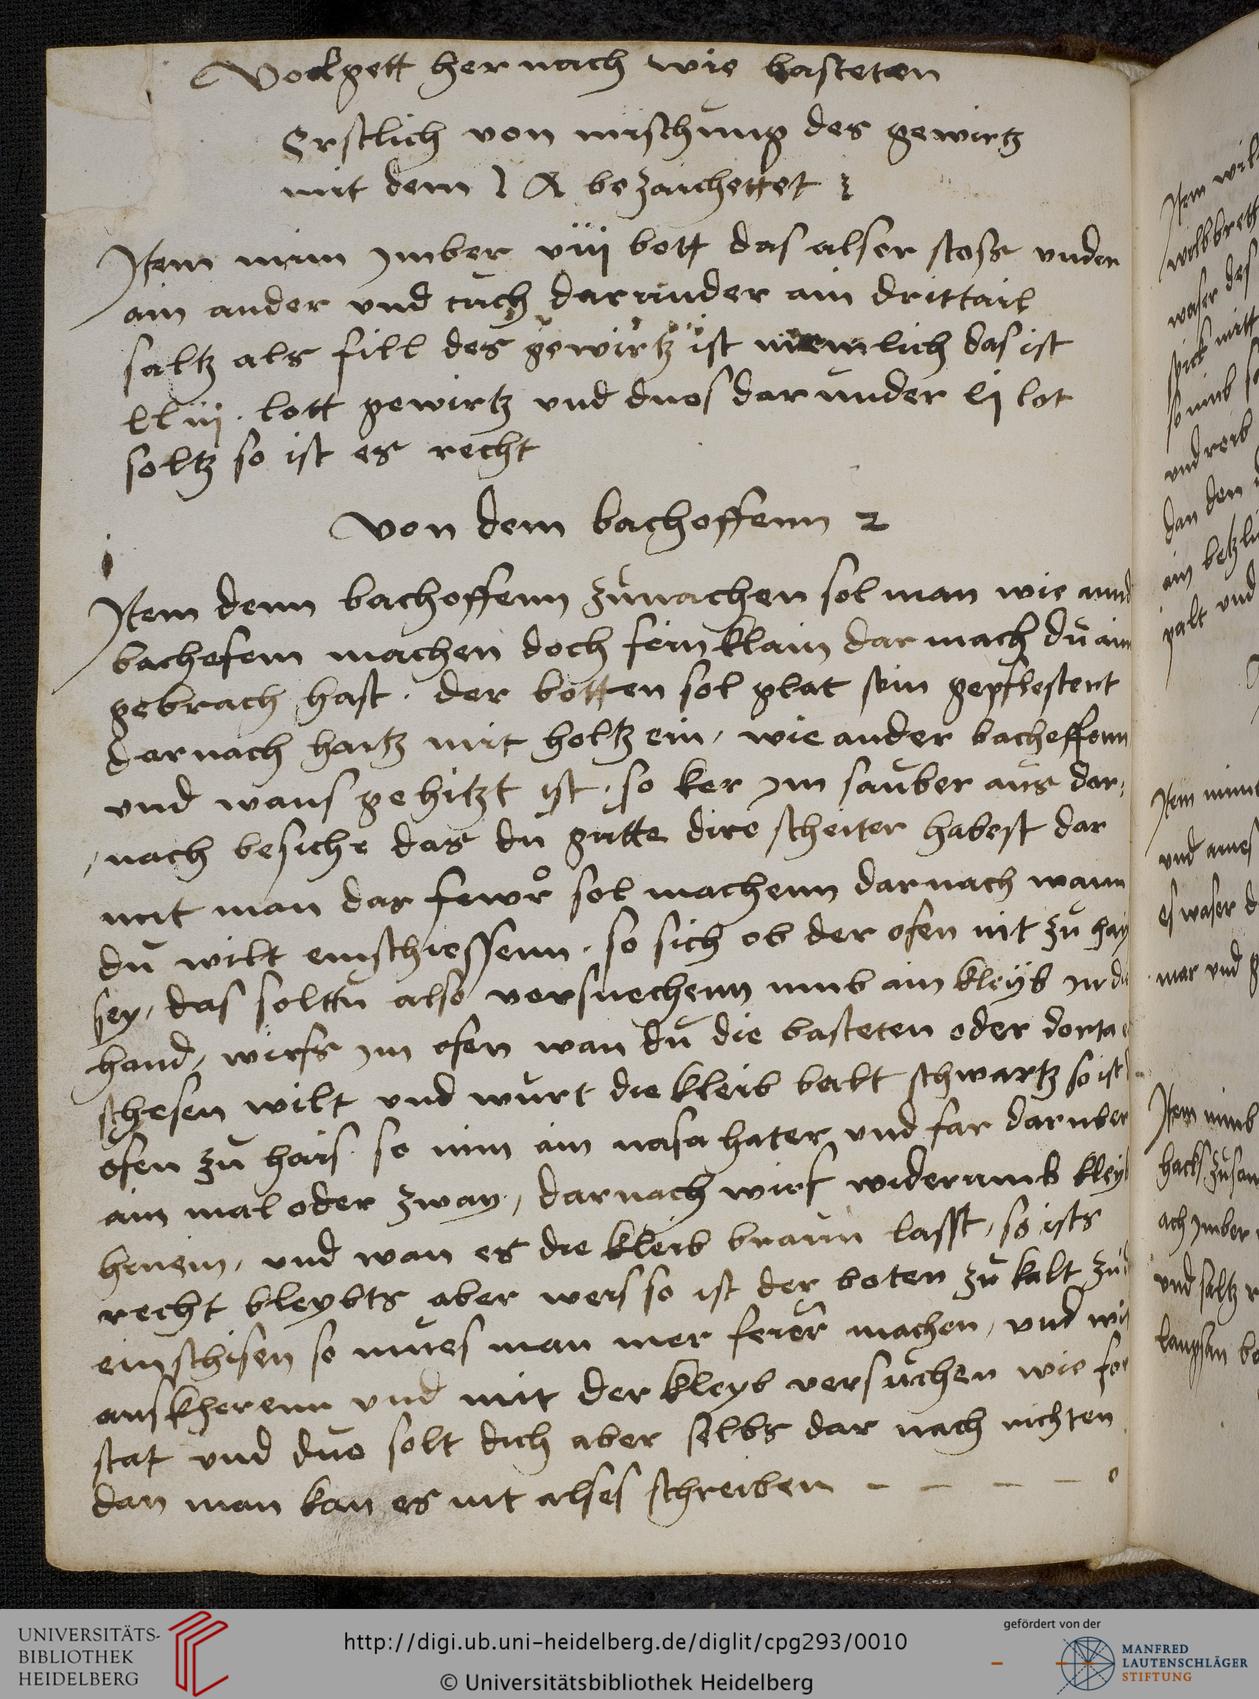 Volgett hernach wie basteten
Erstlich von mischung des gewirtz
mit dem 1 A bezaichettet 1
Item nim Imber viii lott das alser stoss under
ain ander und tuch darunder ain drittail
saltz als fill des gewirtz ist niemlich das ist
lott gewirtz und duos darunder lot
soltz so ist es recht
Von dem bachoffenn 2
Item denn bachoffenn zu machen sol man wie
bachofem machen doch fein klain dar mach du ain
gebrach hast · der botten sol glat sein gepflestert
dernach haitz mit holtz ein, wie ander bacheffenn
und wans gehitzt ist · so ker im sauber aus dar,
nach besiche das du gutte dire scheiter habest dar
mit man das fewr sol machenn darnach wann
du wilt einschiessenn · so sich ob der ofen nit zu hay
sey, das solttu also versuechenn nimb ain kleyb in di
hand, wirfs im ofen wan du die basteten oder dorta
schesen wilt und wurt die kleib balt schwartz so ist
ofen zu hais · so nim ain nasa hater und far daruber
ain mal oder zway, darnach wirf widerumb kley
hinein, und wan es die kleib braun lasst, so ists
recht bleybts aber weis so ist der boten zu kalt zu
einschisen so mues man mer feier machen, und wi
auskherenn und mit der kleyb versuchen wie for
stat und duo solt dich aber selbs dar nach richten
dan man kan es nit alses schreiben – – – – o
Item wil
waser des
spick mitt
so nimb
und reib
dan den
ain
galt und
Item nimt
und
es waser d
mer und
Item nimb
hacks zusam
ach Imber
und saltz
langsan
UNIVERSITÄTS-
BIBLIOTHEK
HEIDELBERG
http://digi.ub.uni-heidelberg.de/diglit/cpg293/0010
© Universitätsbibliothek Heidelberg
gefördert von der
MANFRED
LAUTENSCHLÄGER
STIFTUNG